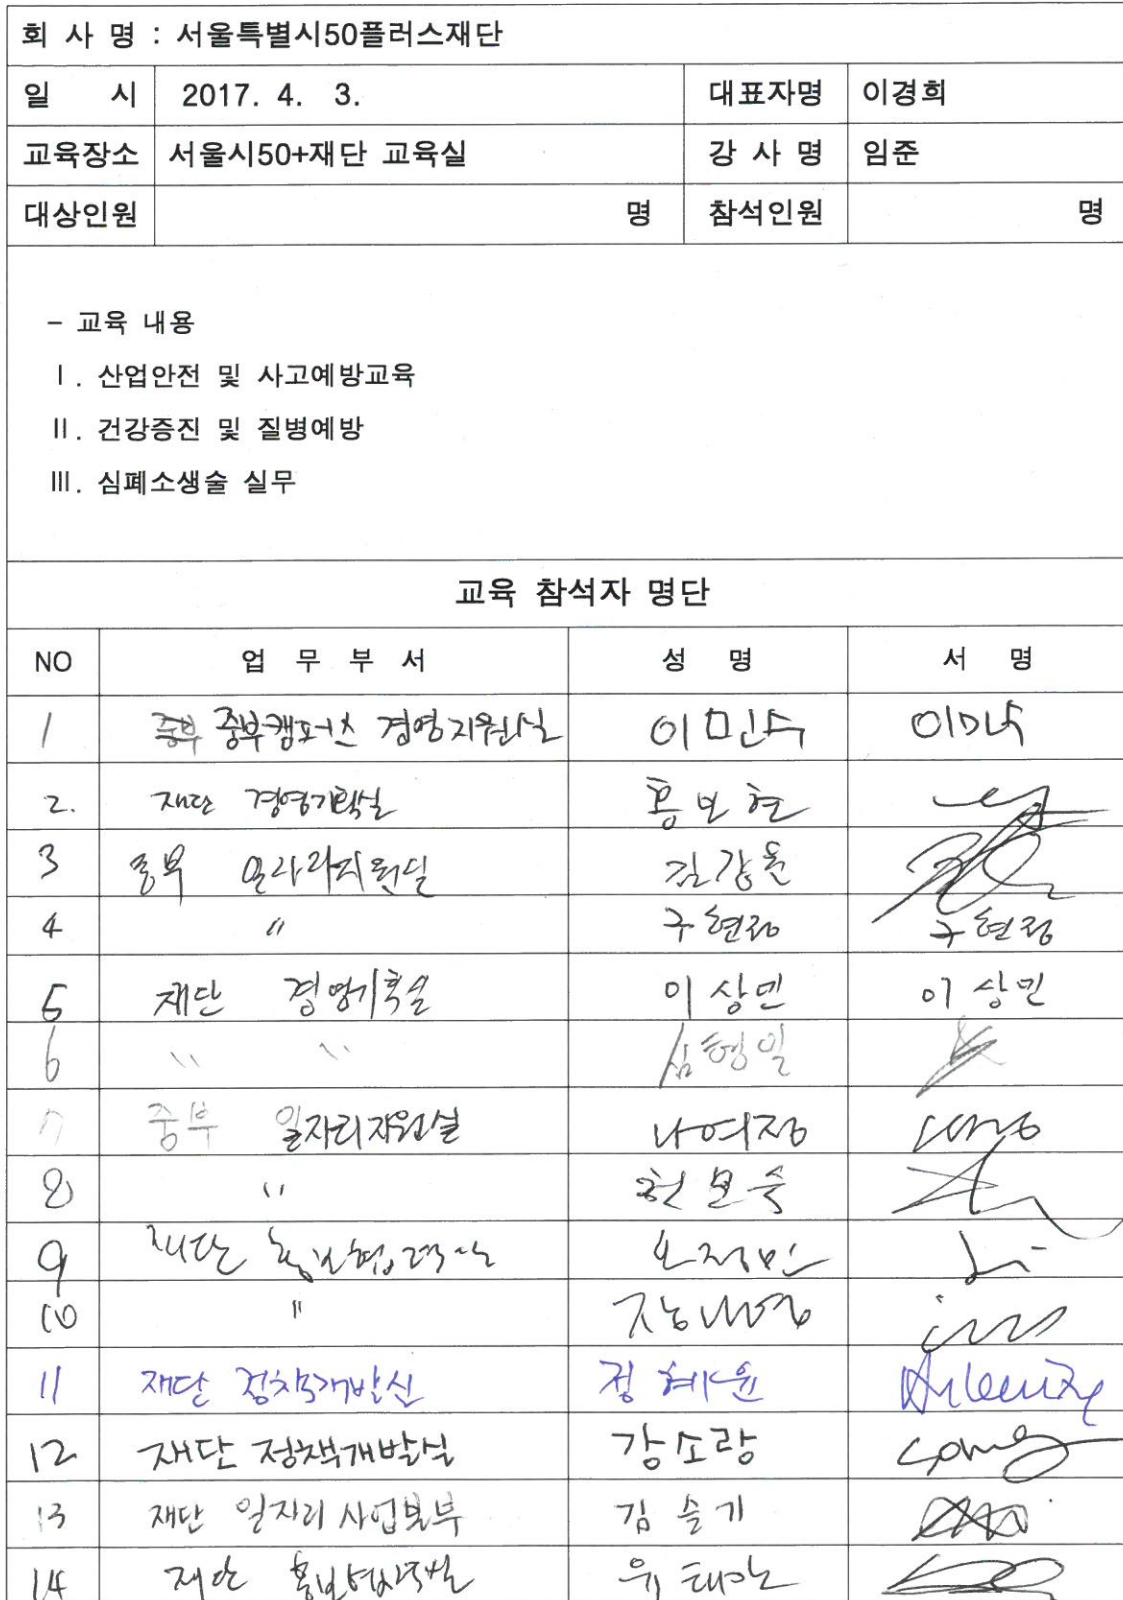 회 사 명 : 서울특별시50플러스재단
일 시 2017. 4. 3. 대표자명 이경희
교육장소 서울시50+재단 교육실 강 사 명 임준
대상인원 명 참석인원 명
- 교육 내용
Ⅰ. 산업안전 및 사고예방교육
Ⅱ. 건강증진 및 질병예방
Ⅲ. 심폐소생술 실무
교육 참석자 명단
NO 업 무 부 서 성 명 서 명
1 중부캠퍼스 경영지원실 이민수
2. 재단 경영기획실 홍보현
3 중부 일자리지원실
4 〃 구현정 구현정
5 재단 경영기획실 이상민 이상민
6 〃 〃 심형일
7 중부 일자리지원실 나여정
8 〃
9 재단 홍보협력실 오정민
10 〃
11 재단 정책개발실 정혜윤
12 재단 정책개발실 강소랑 Song
13 재단 일자리사업본부 김슬기
14 재단 홍보협력실